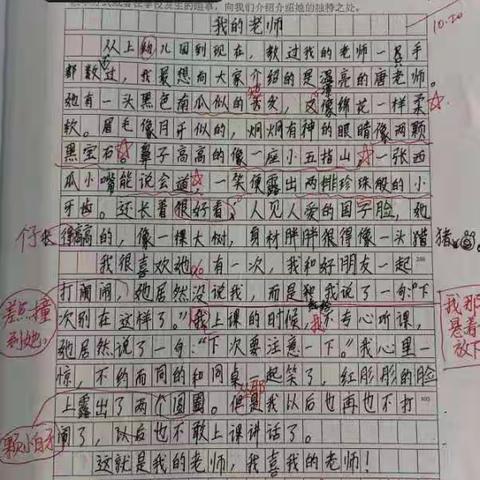 向我们介绍介绍她的独特之处。
10.20
我的老师
从上幼儿园到现在，教过我的老师一只手
都数过，我最想向大家介绍的是漂亮的唐老师。
她有一头黑色南瓜似的头发，又像棉花一样柔
软。眉毛像月牙似的，炯炯有神的眼睛像两颗
黑宝石。鼻子高高的像一座小五指山，一张西
瓜小嘴能说会道，一笑便露出两排珍珠般的小
牙齿。还长着很好看，人见人爱的国字脸，她
得高高的，像一棵大树，身材胖胖很得像一头猪
猪
我很喜欢她。有一次，我和好朋友一起
打闹闹，她居然没说我，而是狠我说了一句："下
次别在这样了。"我上课的时候，我不专心听课，
她居然说了一句："下次要注意一下。"我心里一
惊，不约而同的和同桌一起笑了，红彤彤的脸
上露出了两个圆圈。但是我以后也再也不打
闹了，以后也不敢上课讲话了。
这就是我的老师，我喜我的老师！
差点撞
到她。
我那
悬着
放下